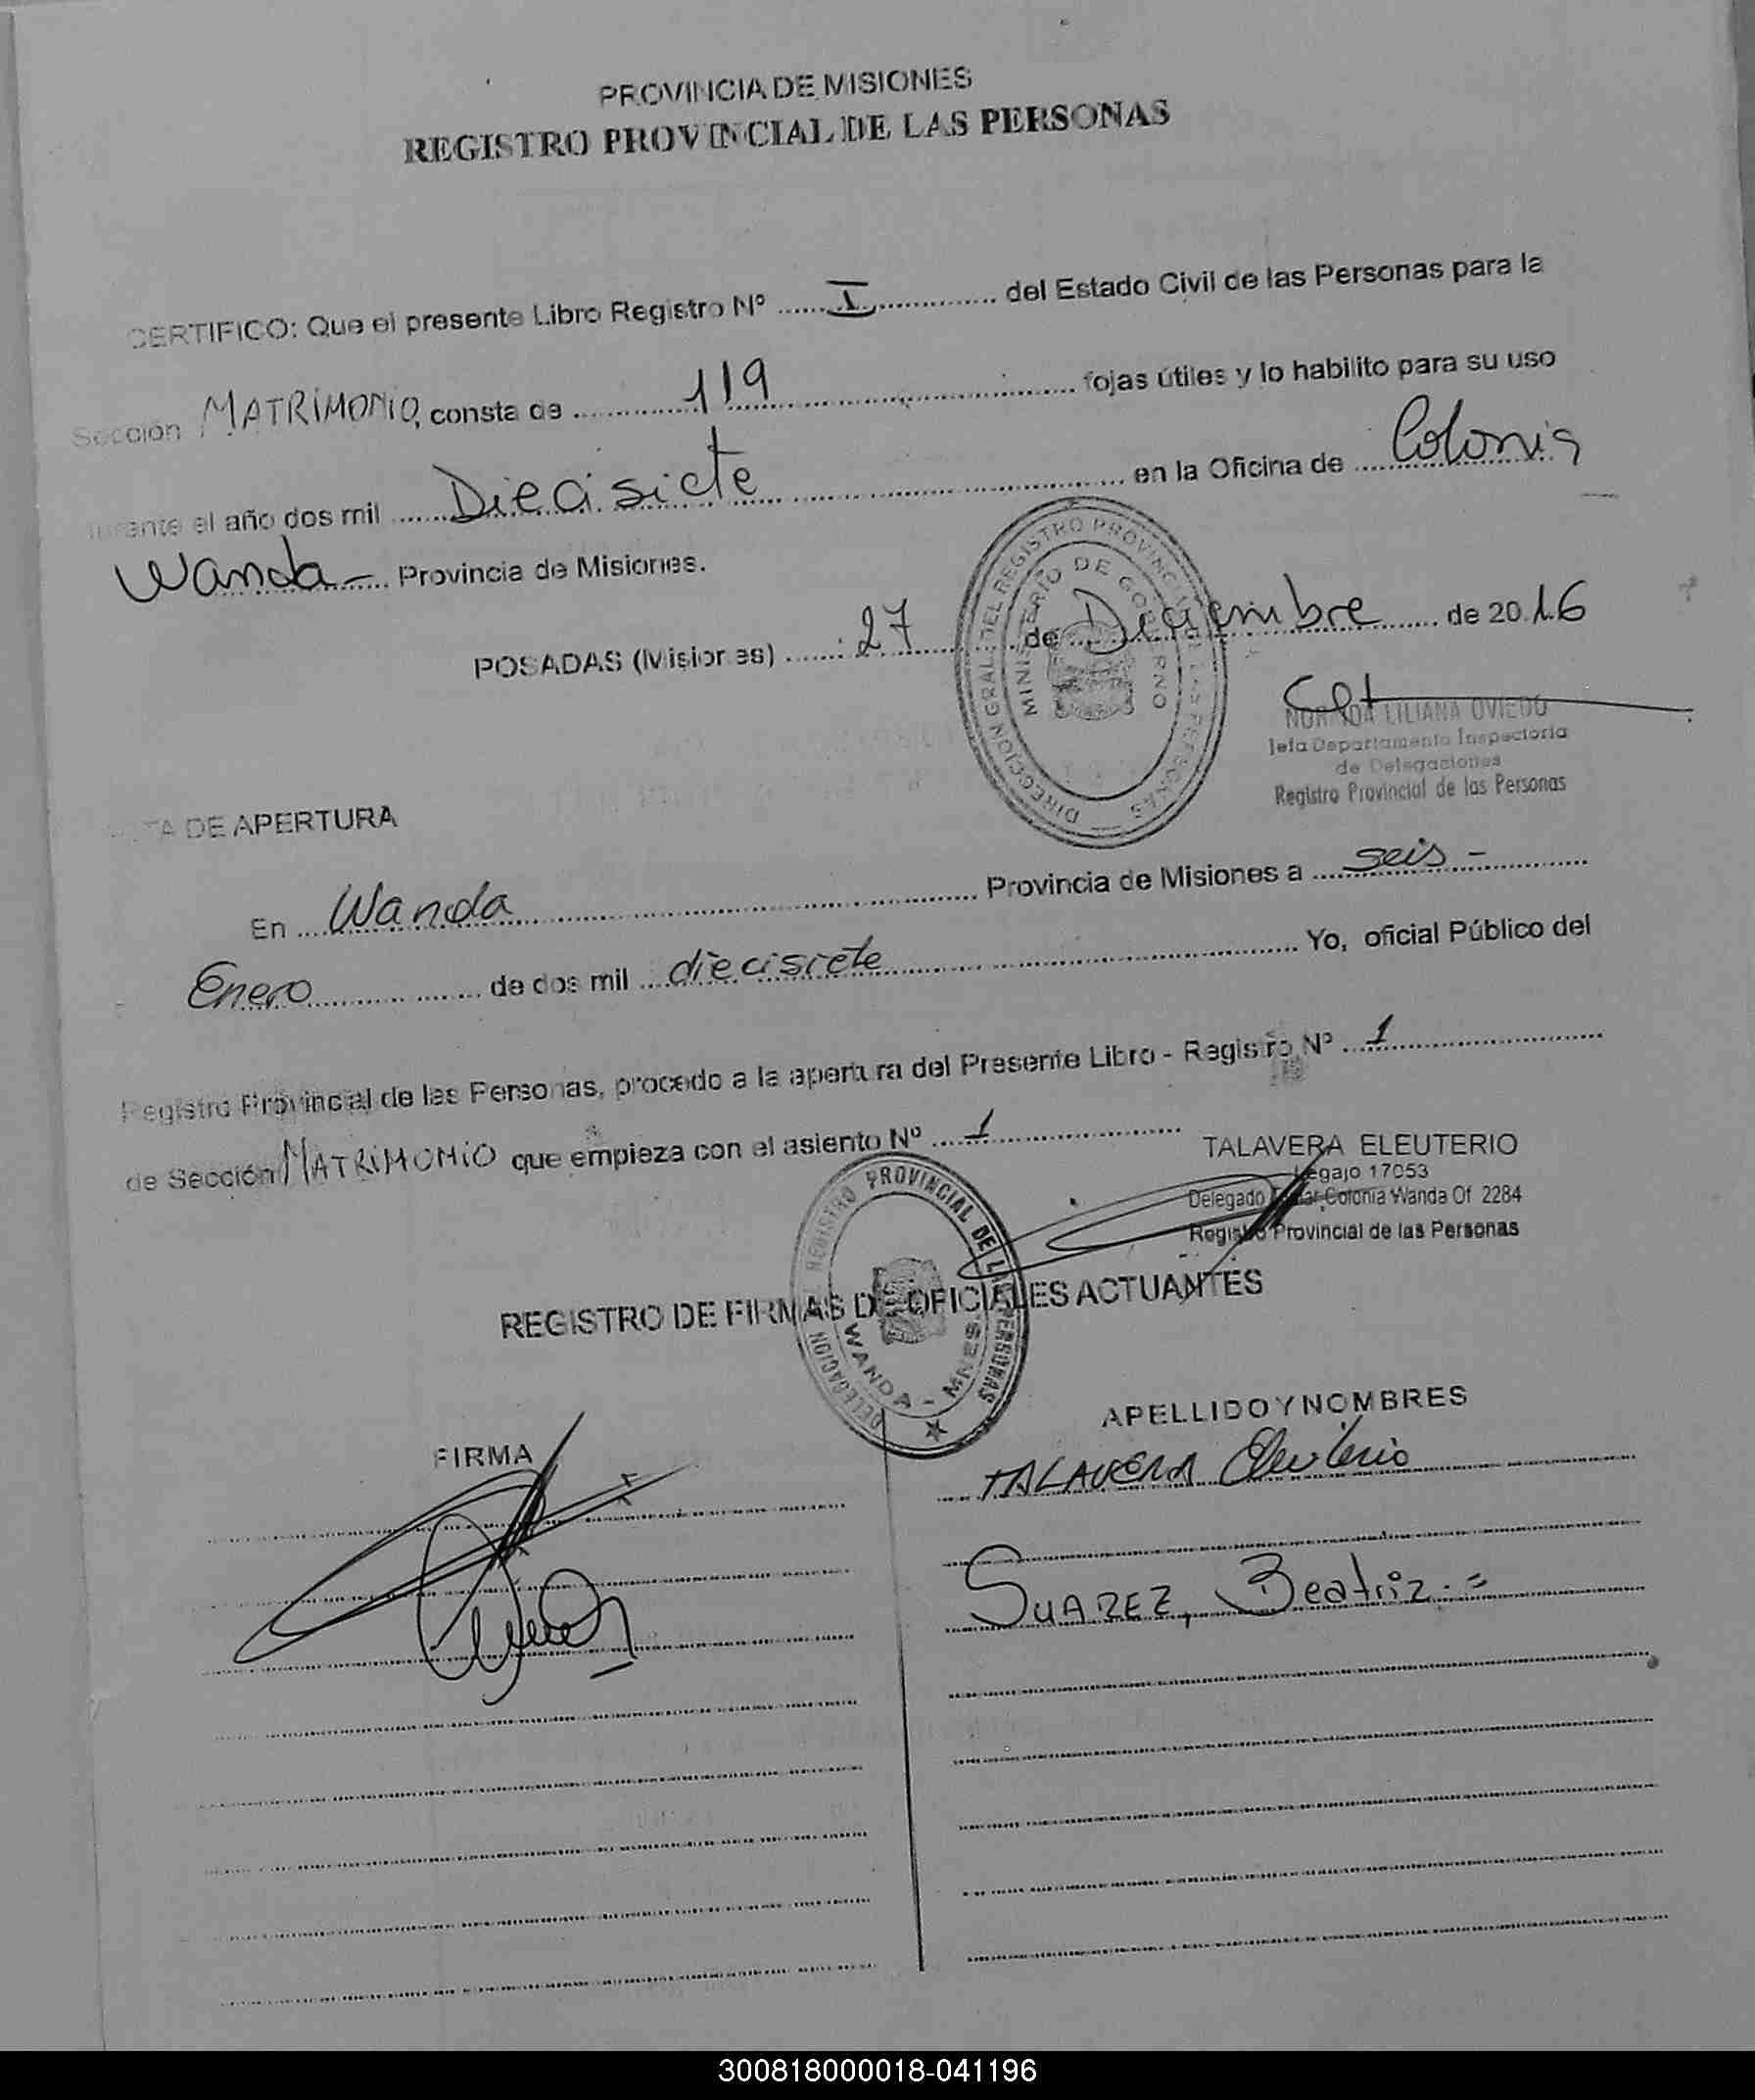 PROVINCIA DE MISIONES
REGISTRO PROVINCIAL DE LAS PERSONAS
CERTIFICO: Que el presente Libro Registro Nº I del Estado Civil de las Personas para la
Sección MATRIMONIO, consta de 119 fojas útiles y lo habilito para su uso
durante el año dos mil Diecisiete en la Oficina de Colonia
Wanda - Provincia de Misiones.
POSADAS (Misiones) 27 de Diciembre de 2016
DIRECCION GRAL. DEL REGISTRO PROVINCIAL DE LAS PERSONAS
MINISTERIO DE GOBIERNO
LILIANA OVIEDO
Jefa Departamento Inspectoria
de Delegaciones
Registro Provincial de las Personas
ACTA DE APERTURA
En Wanda Provincia de Misiones a seis -
Enero de dos mil diecisiete Yo, oficial Público del
Registro Provincial de las Personas, procedo a la apertura del Presente Libro - Registro Nº 1
de Sección MATRIMONIO que empieza con el asiento Nº 1
TALAVERA ELEUTERIO
Legajo 17053
Delegado Colonia Wanda Of 2284
Registro Provincial de las Personas
DELEGACION REGISTRO PROVINCIAL DE LAS PERSONAS
WANDA - MNES.
REGISTRO DE FIRMAS DE OFICIALES ACTUANTES
FIRMA
APELLIDO Y NOMBRES
TALAVERA Eleuterio
SUAREZ, Beatriz.=
300818000018-041196